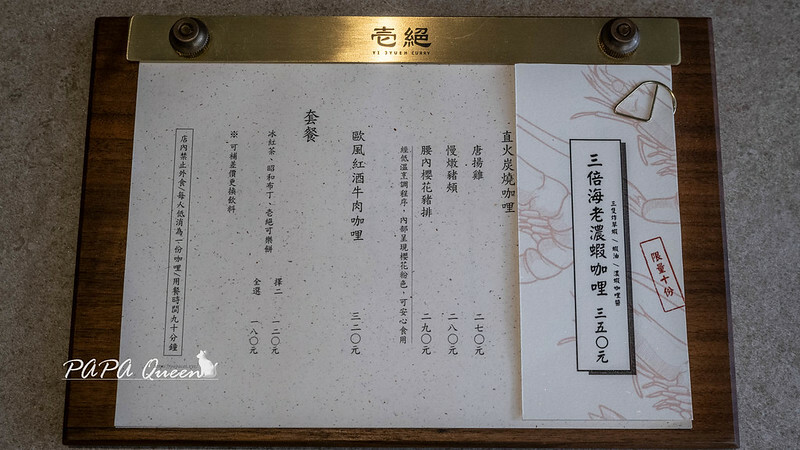 壱絕
YI JYUEH CURRY
限量十份
三隻炸草蝦/蝦油/濃蝦咖哩醬
三倍海老濃蝦咖哩 三五〇元
直火炭燒咖哩
唐揚雞 二七〇元
慢燉豬頰 二八〇元
腰內櫻花豬排 二九〇元
經低溫烹調程序,內部呈現櫻花粉色,可安心食用
歐風紅酒牛肉咖哩 三二〇元
套餐
冰紅茶、昭和布丁、壱絕可樂餅 擇二 一二〇元
全選 一八〇元
※ 可補差價更換飲料
店內禁止外食/每人低消為一份咖哩/用餐時間九十分鐘
PAPA Queen